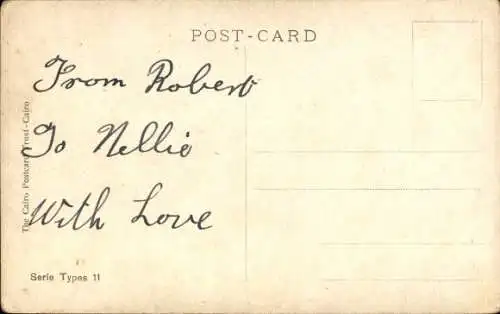 POST-CARD
From Robert
To Nellie
With Love
The Cairo Postcard Trust-Cairo.
Serie Types 11